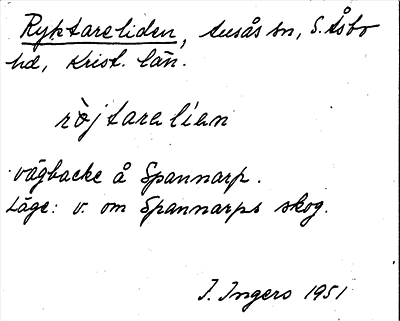 Ryktareliden, Ausås sn, S. Åsbo
hd, Krist. län.
ròjtarelíen
vägbacke å Spannarp.
Läge: v. om Spannarps skog.
J. Ingers 1951